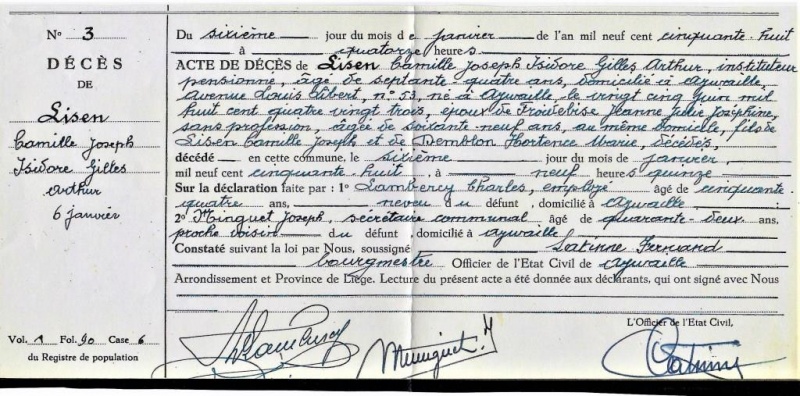 N° 3
DÉCÈS
DE
Lisen
Camille Joseph
Isidore Gilles
Arthur
6 janvier
Vol. 1 Fol. 90 Case 6
du Registre de population
Du sixième jour du mois de janvier de l'an mil neuf cent cinquante-huit
à quatorze heures
ACTE DE DÉCÈS de Lisen Camille Joseph Isidore Gilles Arthur, instituteur
pensionné, âgé de septante-quatre ans, domicilié à Aywaille,
Avenue Louis Libert, n° 53, né à Aywaille, le vingt cinq juin mil
huit cent quatre vingt trois, époux de Froidebise Jeanne Julie Joséphine,
sans profession, âgée de soixante neuf ans, au même domicile, fils de
Lisen Camille Joseph et de Demblon Hortence Marie, décédés,
décédé en cette commune, le sixième jour du mois de janvier,
mil neuf cent cinquante huit, à neuf heures quinze
Sur la déclaration faite par : 1° Lambercy Charles, employé âgé de cinquante
quatre ans, neveu du défunt, domicilié à Aywaille
2° Minguet Joseph, secrétaire communal âgé de quarante-deux ans,
proche voisin du défunt domicilié à Aywaille
Constaté suivant la loi par Nous, soussigné Satinne Fernand
bourgmestre Officier de l'Etat Civil de Aywaille
Arrondissement et Province de Liège. Lecture du présent acte a été donnée aux déclarants, qui ont signé avec Nous
L'Officier de l'Etat Civil,